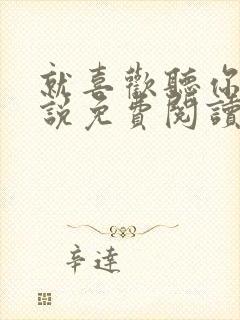 就喜歡聽你
說免費閱讀
辛達